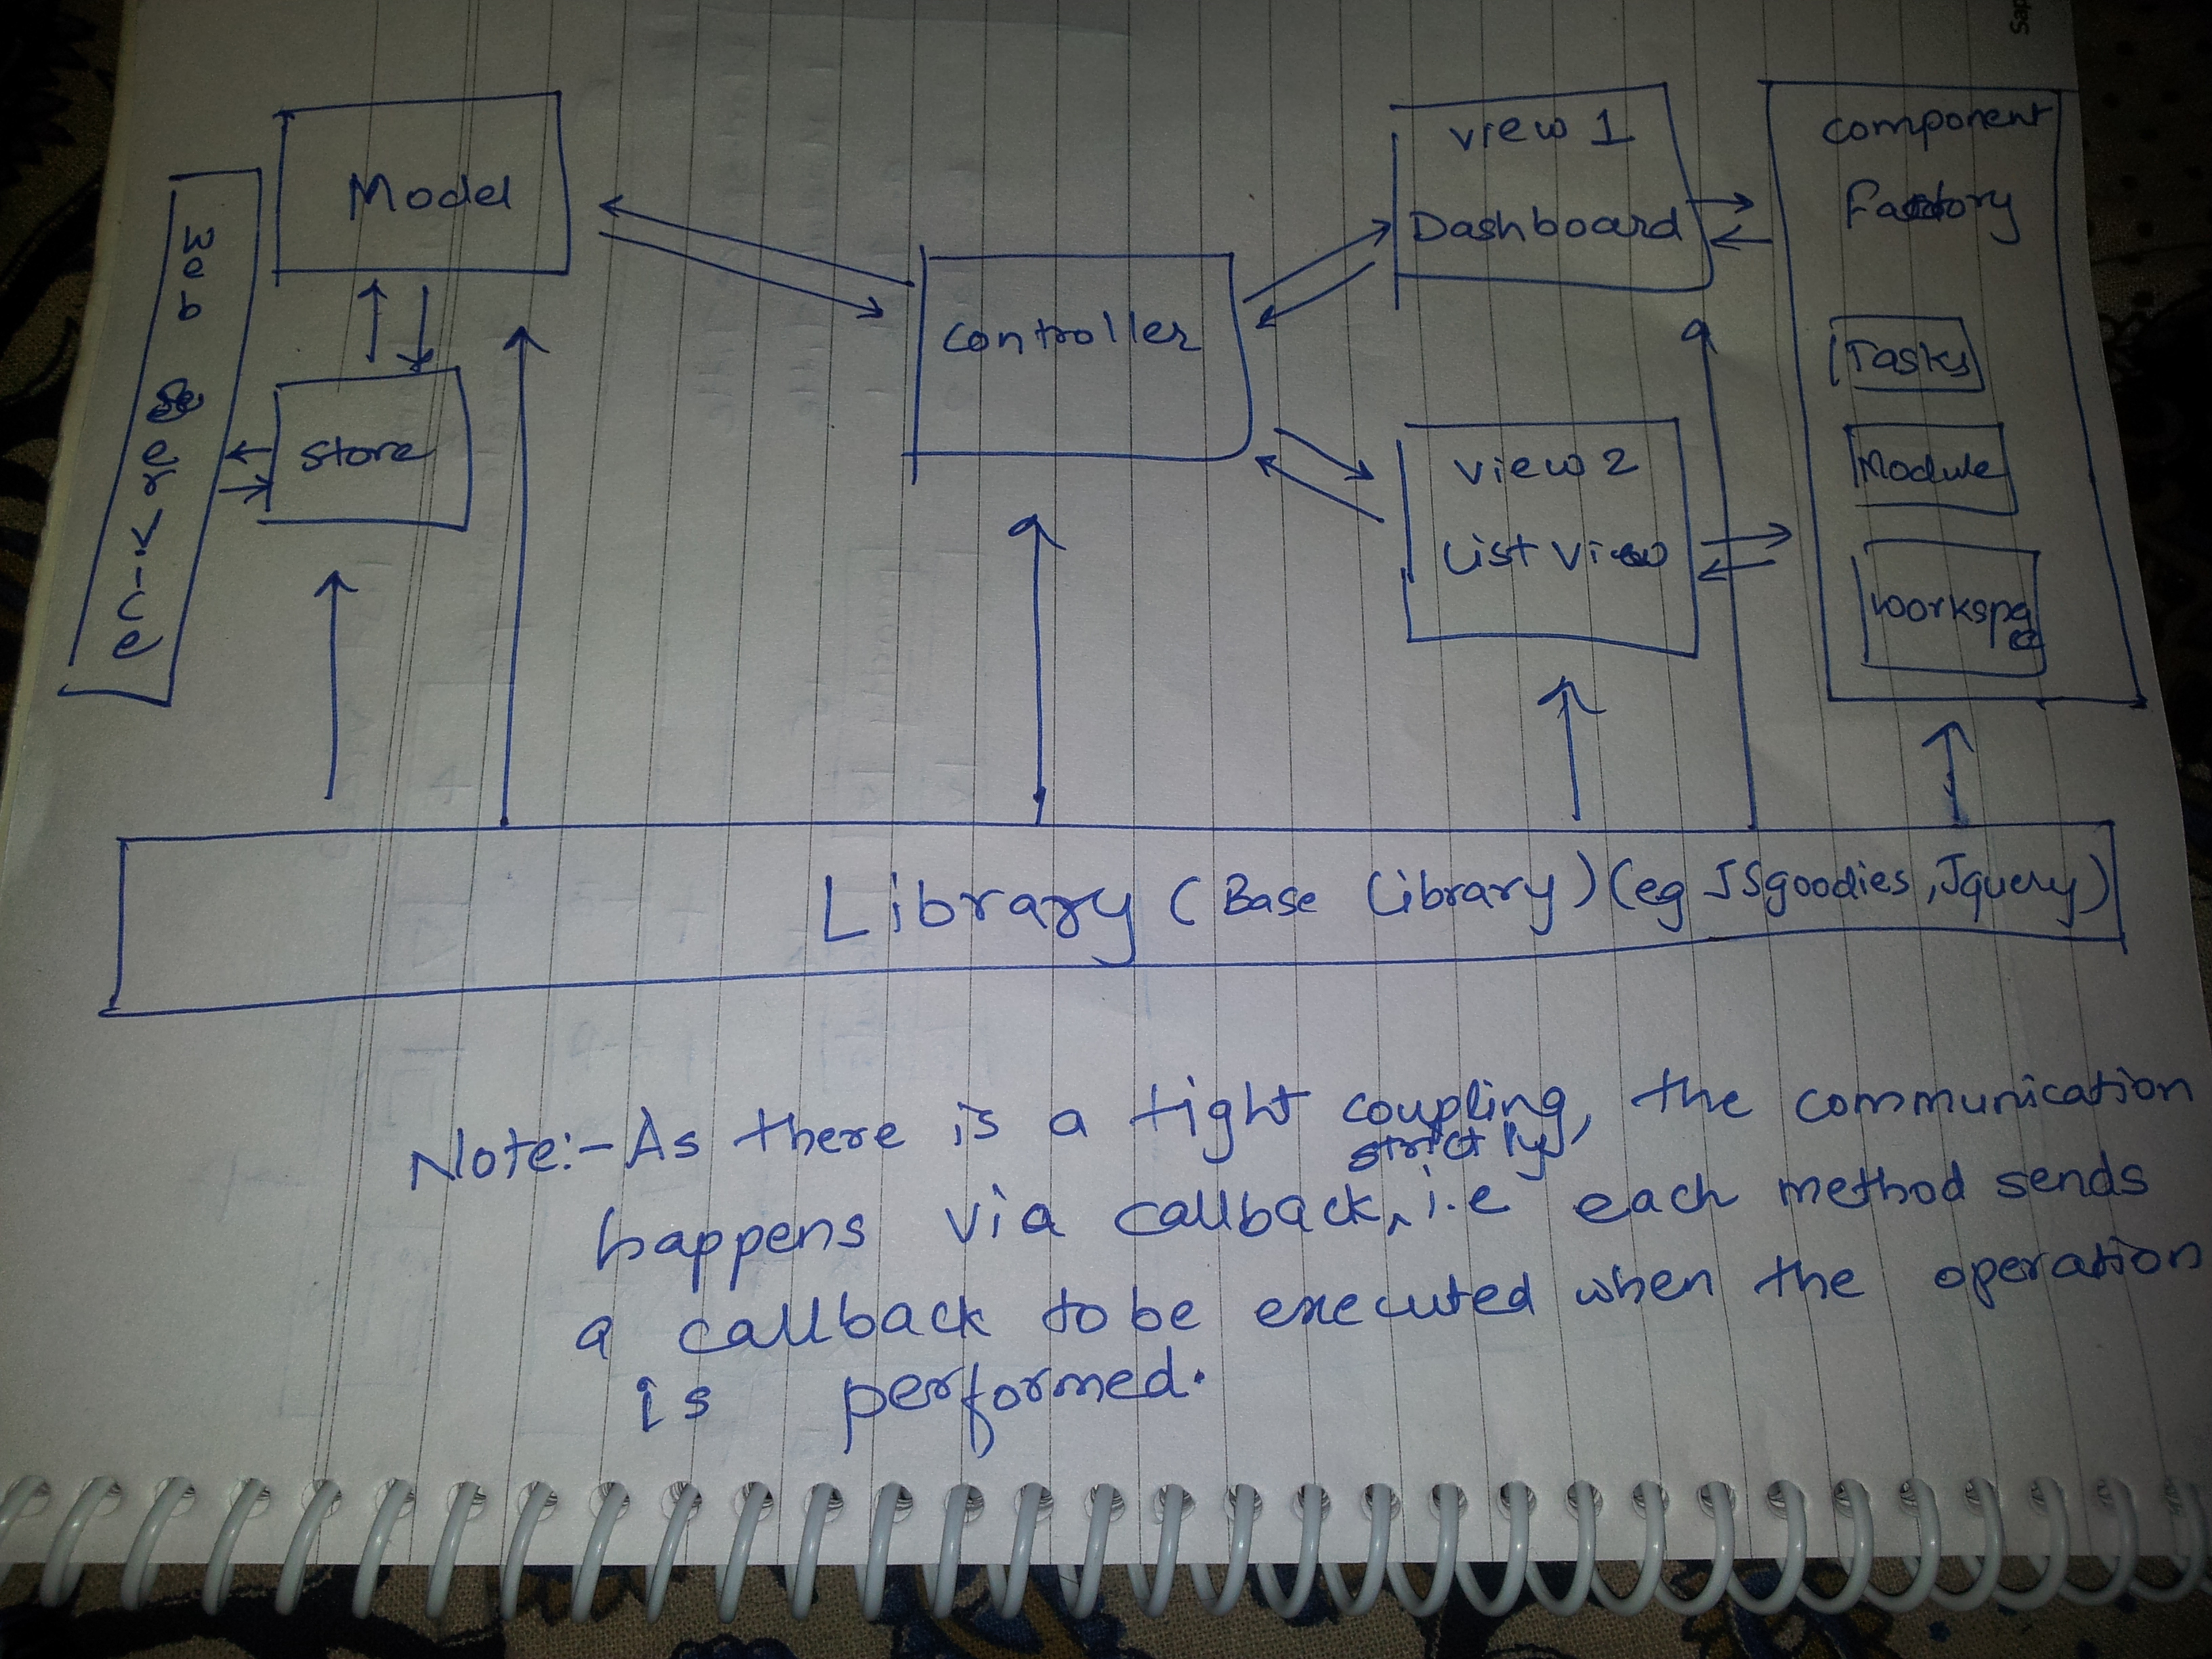 Web
Service
Model
Store
Controller
View 1
Dashboard
View 2
List View
Component
Factory
Task
Module
Workspace
Library (Base Library) (eg JSgoodies, Jquery)
Note:- As there is a tight coupling, the communication
happens via a callback, strictly, i.e each method sends
a callback to be executed when the operation
is performed.